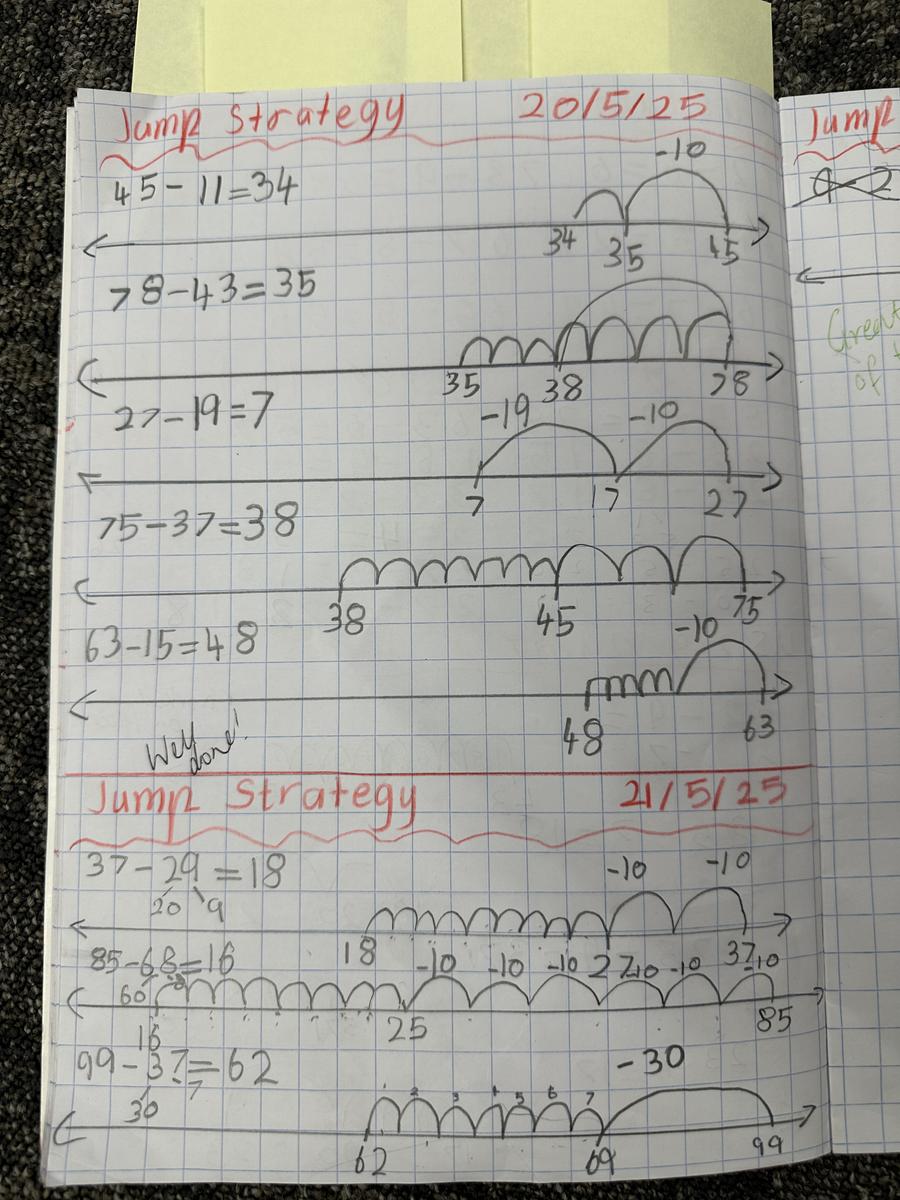 Jump Strategy 20/5/25
Jump
45-11=34
-10
34 35 45
78-43=35
35 38 78
Great
of
27-19=7
-19 -10
7 17 27
75-37=38
38 45 75
63-15=48
-10
48 63
Well done!
Jump Strategy 21/5/25
37-29=18
20 9
-10 -10
18 27 37
85-68=16
60 8
-10 -10 -10 -10 -10 -10
16 25 85
99-37=62
30 7
-30
2 3 4 5 6 7
62 69 99